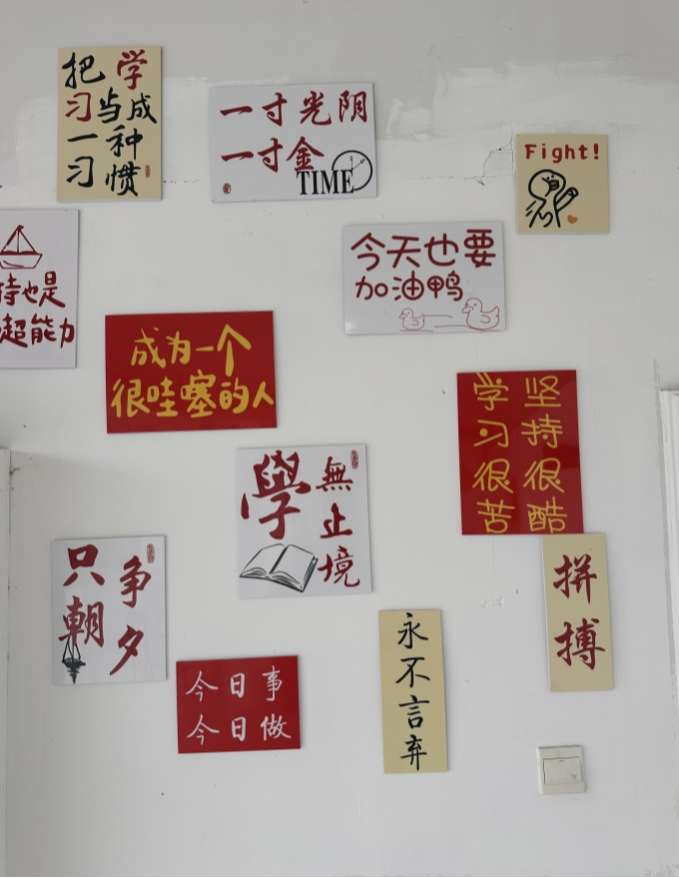 把学
习当成
一种
习惯
一寸光阴
一寸金
TIME
Fight!
持也是
超能力
今天也要
加油鸭
成为一个
很哇塞的人
学习很苦
坚持很酷
學
無止境
只争
朝夕
拼搏
今日事
今日做
永不言弃